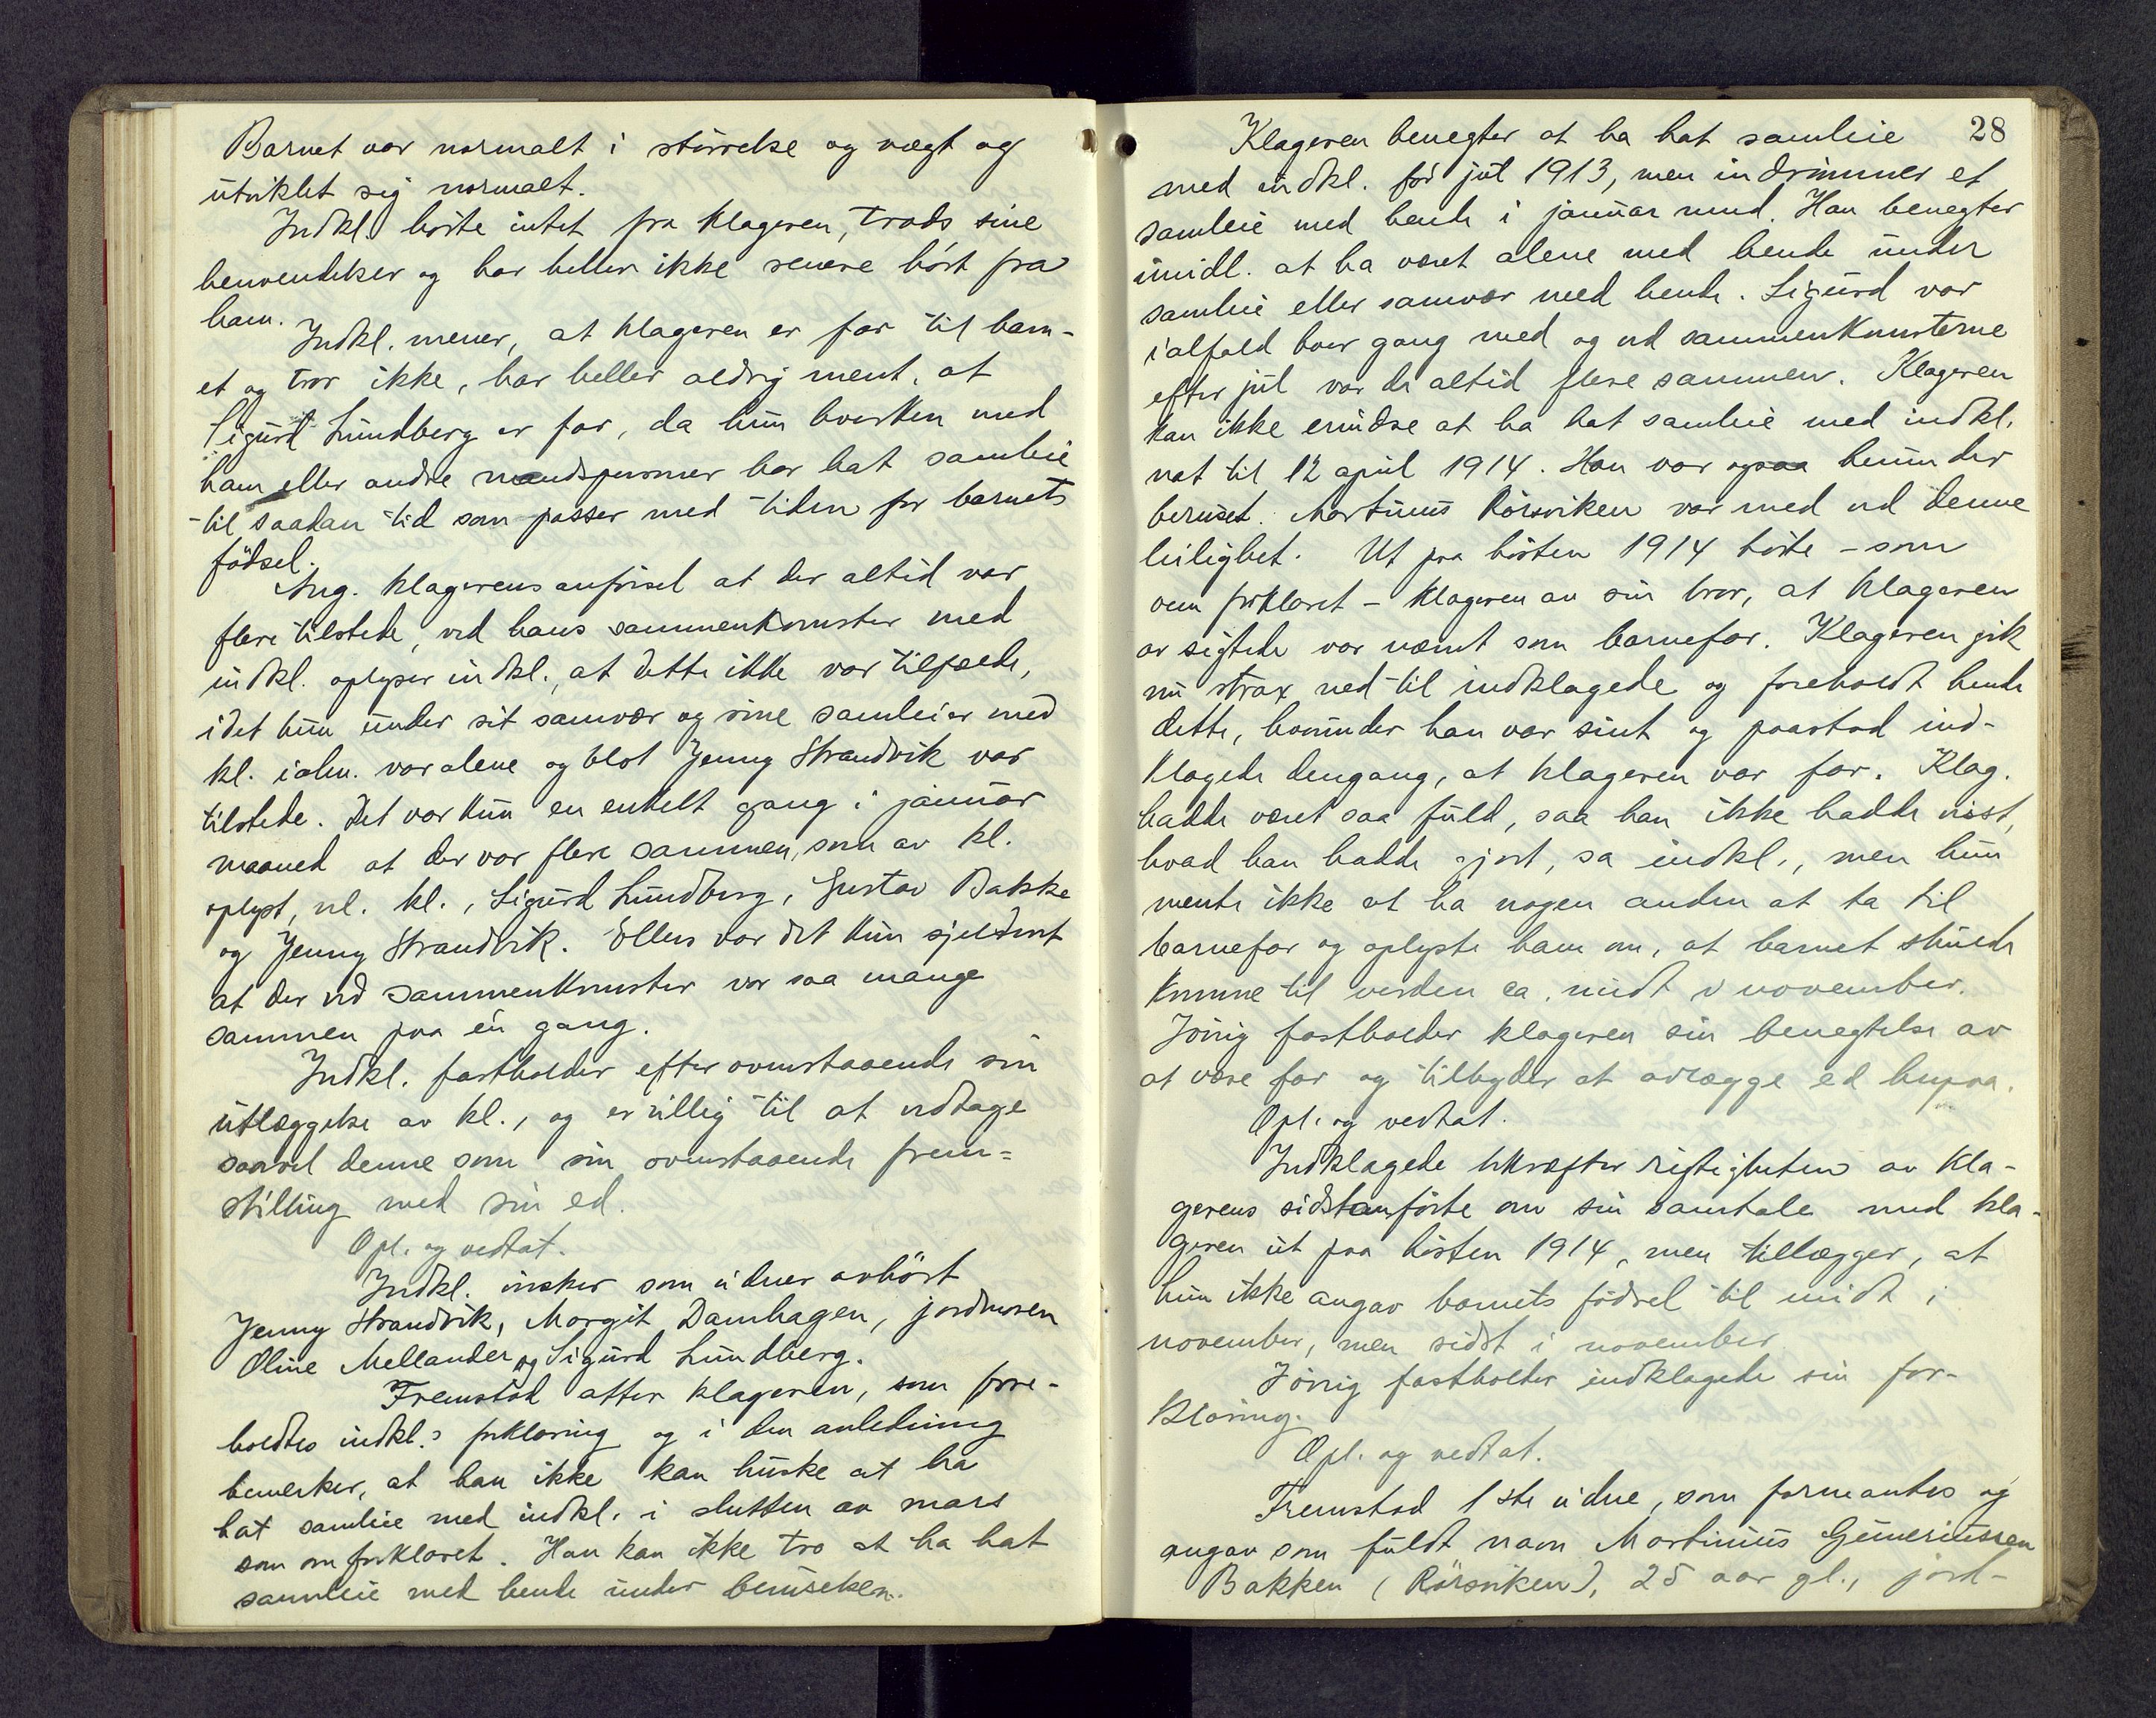 Barnet var normalt i störrelse og vegt og
utviklet sig normalt.
Indkl. hörte intet fra klageren, trods sine
henvendelser og har heller ikke senere hört fra
ham.
Indkl. mener, at klageren er far til barn-
et og tror ikke, har heller aldrig ment, at
Sigurd Lundberg er far, da hun hverken med
ham eller andre mandspersoner har hat samleie
til saadan tid som passer med tiden for barnets
födsel.
Ang. klagerens anförsel at der altid var
flere tilstede, ved hans sammenkomster med
indkl. oplyser indkl., at dette ikke var tilfælde,
idet hun under sit samvær og sine samleier med
kl. ialm. var alene og blot Jenny Strandvik var
tilstede. Det var kun en enkelt gang i januar
maaned at der var flere sammen, som av kl.
oplyst, nl. kl., Sigurd Lundberg, Gustav Bakke
og Jenny Strandvik. Ellers var det kun sjeldent
at der ved sammenkomster var saa mange
sammen paa én gang.
Indkl. fastholder efter ovenstaaende sin
utlæggelse av kl., og er villig til at vedtage
saavel denne som sin ovenstaaende frem=
stilling med sin ed.
Opl. og vedtat.
Indkl. önsker som vidner avhört
Jenny Strandvik, Margit Damhagen, jordmoren
Oline Mellander og Sigurd Lundberg.
Fremstod atter klageren, som fore-
holdtes indkl.s forklaring og i den anledning
bemerker, at han ikke kan huske at ha
hat samleie med indkl. i slutten av mars
som omforklaret. Han kan ikke tro at ha hat
samleie med hende under beruselsen.
28
Klageren benegter at ha hat samleie
med indkl. för jul 1913, men indrömmer et
samleie med hende i januar mnd. Han benegter
imidl. at ha været alene med hende under
samleie eller samvær med hende. Sigurd var
ialfald hver gang med og ved sammenkomsterne
efter jul var de altid flere sammen. Klageren
kan ikke erindre at ha hat samleie med indkl.
nat til 12 april 1914. Han var ogsaa herunder
beruset. Martinus Rörsviken var med ved denne
leilighet. Ut paa hösten 1914 hörte - som
oven forklaret - klageren av sin bror, at klageren
av sigtede var nævnt som barnefar. Klageren gik
nu strax ned til indklagede og foreholdt hende
dette, hvorunder han var sint og paastod ind-
klagede dengang, at klageren var far. Klag.
hadde været saa fuld, saa han ikke hadde visst,
hvad han hadde gjort, sa indkl., men hun
mente ikke at ha nogen anden at ta til
barnefar og oplyste ham om, at barnet skulde
komme til verden ca. midt i november.
Jövrig fastholder klageren sin benegtelse av
at være far og tilbyder at avlægge ed herpaa.
Opl. og vedtat.
Indklagede bekræfter rigtigheten av kla-
gerens sidstanförte om sin samtale med kla-
geren ut paa hösten 1914, men tillægger, at
hun ikke angav barnets födsel til midt i
november, men sidst i november.
Jövrig fastholder indklagede sin for-
klaring.
Opl. og vedtat.
Fremstod 1ste vidne, som formantes og
angav som fuldt navn Martinus Gunneriussen
Bakken (Rörsviken), 25 aar gl., jord-